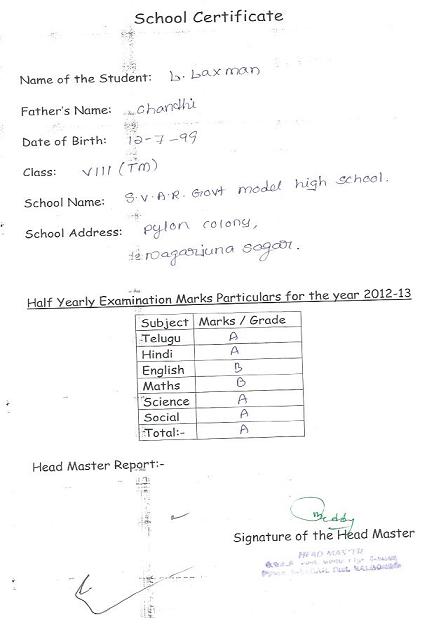 School Certificate
Name of the Student: L. Laxman
Father's Name: Chandhi
Date of Birth: 12-7-99
Class: VIII (TM)
School Name: S.V.A.R. Govt model high school.
School Address: pylon colony,
Nagarjuna sagar.
Half Yearly Examination Marks Particulars for the year 2012-13
Subject Marks / Grade
Telugu A
Hindi A
English B
Maths B
Science A
Social A
Total:- A
Head Master Report:-
Signature of the Head Master
HEAD MASTER